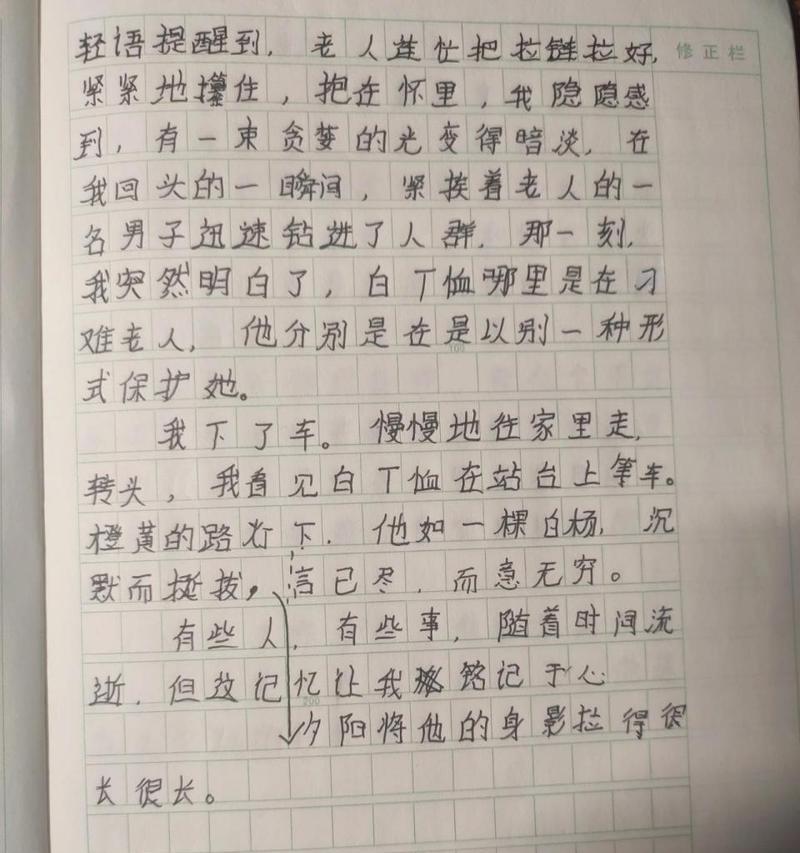 轻语提醒到，老人连忙把拉链拉好，
修正栏
紧紧地攥住，抱在怀里，我隐隐感
到，有一束贪婪的光变得暗淡，在
我回头的一瞬间，紧挨着老人的一
名男子迅速钻进了人群，那一刻，
我突然明白了，白T恤哪里是在刁
难老人，他分别是在是以别一种形
式保护她。
我下了车。慢慢地往家里走，
转头，我看见白T恤在站台上等车。
橙黄的路灯下，他如一棵白杨，沉
默而挺拔，言已尽，而意无穷。
有些人，有些事，随着时间流
逝，但这记忆让我铭记于心
夕阳将他的身影拉得很
长很长。